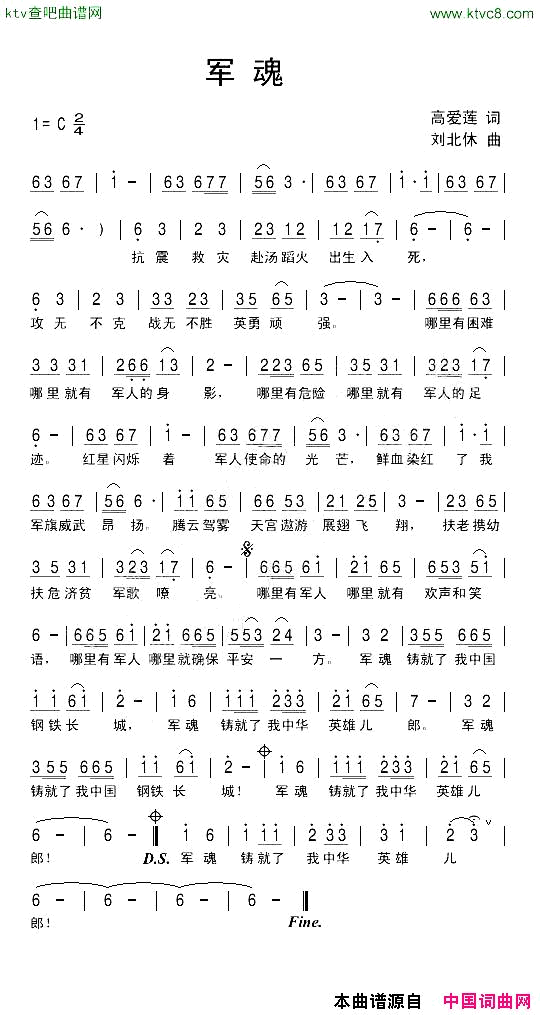 ktv查吧曲谱网
www.ktvc8.com
军魂
1= C 2/4
高爱莲 词
刘北休 曲
63 67 | i - | 63 677 | 56 3 · | 63 67 | i · i | 63 67 |
56 6 · ) | 6 3 | 2 3 | 23 12 | 12 17 | 6 - | 6 - |
抗 震 救 灾 赴汤 蹈火 出生 入 死,
6 3 | 2 3 | 33 23 | 35 65 | 3 - | 3 - | 666 63 |
攻 无 不 克 战无 不胜 英勇 顽 强。 哪里有困难
3 3 31 | 266 13 | 2 - | 223 65 | 3 5 31 | 323 17 |
哪里就有 军人的身 影, 哪里有危险 哪里就有 军人的足
6 - | 63 67 | i - | 63 677 | 56 3 · | 63 67 | i · i |
迹。 红星闪烁 着 军人使命的 光 芒, 鲜血染红 了 我
63 67 | 56 6 · | ii 65 | 665 53 | 21 25 | 3 - | 3 5 35 |
军旗威武 昂 扬。 腾云驾雾 天宫遨游 展翅飞 翔, 扶老携幼
3 5 31 | 323 17 | 6 - | 665 6i | 2i 65 | 335 67 |
扶危济贫 军歌嘹 亮。 哪里有军人 哪里就有 欢声和笑
6 - | 665 6i | 2i 665 | 553 24 | 3 - | 3 2 | 355 665 |
语, 哪里有军人 哪里就确保 平安 一 方。 军魂 铸就了我中国
i i 6i | 2 - | i 6 | iii 233 | 2i 65 | 7 - | 3 2 |
钢铁长 城, 军魂 铸就了我中华 英雄儿 郎。 军魂
355 665 | i i 6i | 2 - | i 6 | iii 233 | 2i 65 |
铸就了我中国 钢铁长 城! 军魂 铸就了我中华 英雄儿
6 - | 6 - ‖ i 6 | i ii | 2 33 | 3 i | 2 · 3 v |
郎! D.S. 军 魂 铸就了 我中华 英 雄 儿
6 - | 6 - | 6 - | 6 - ‖
郎! Fine.
本曲谱源自 中国词曲网